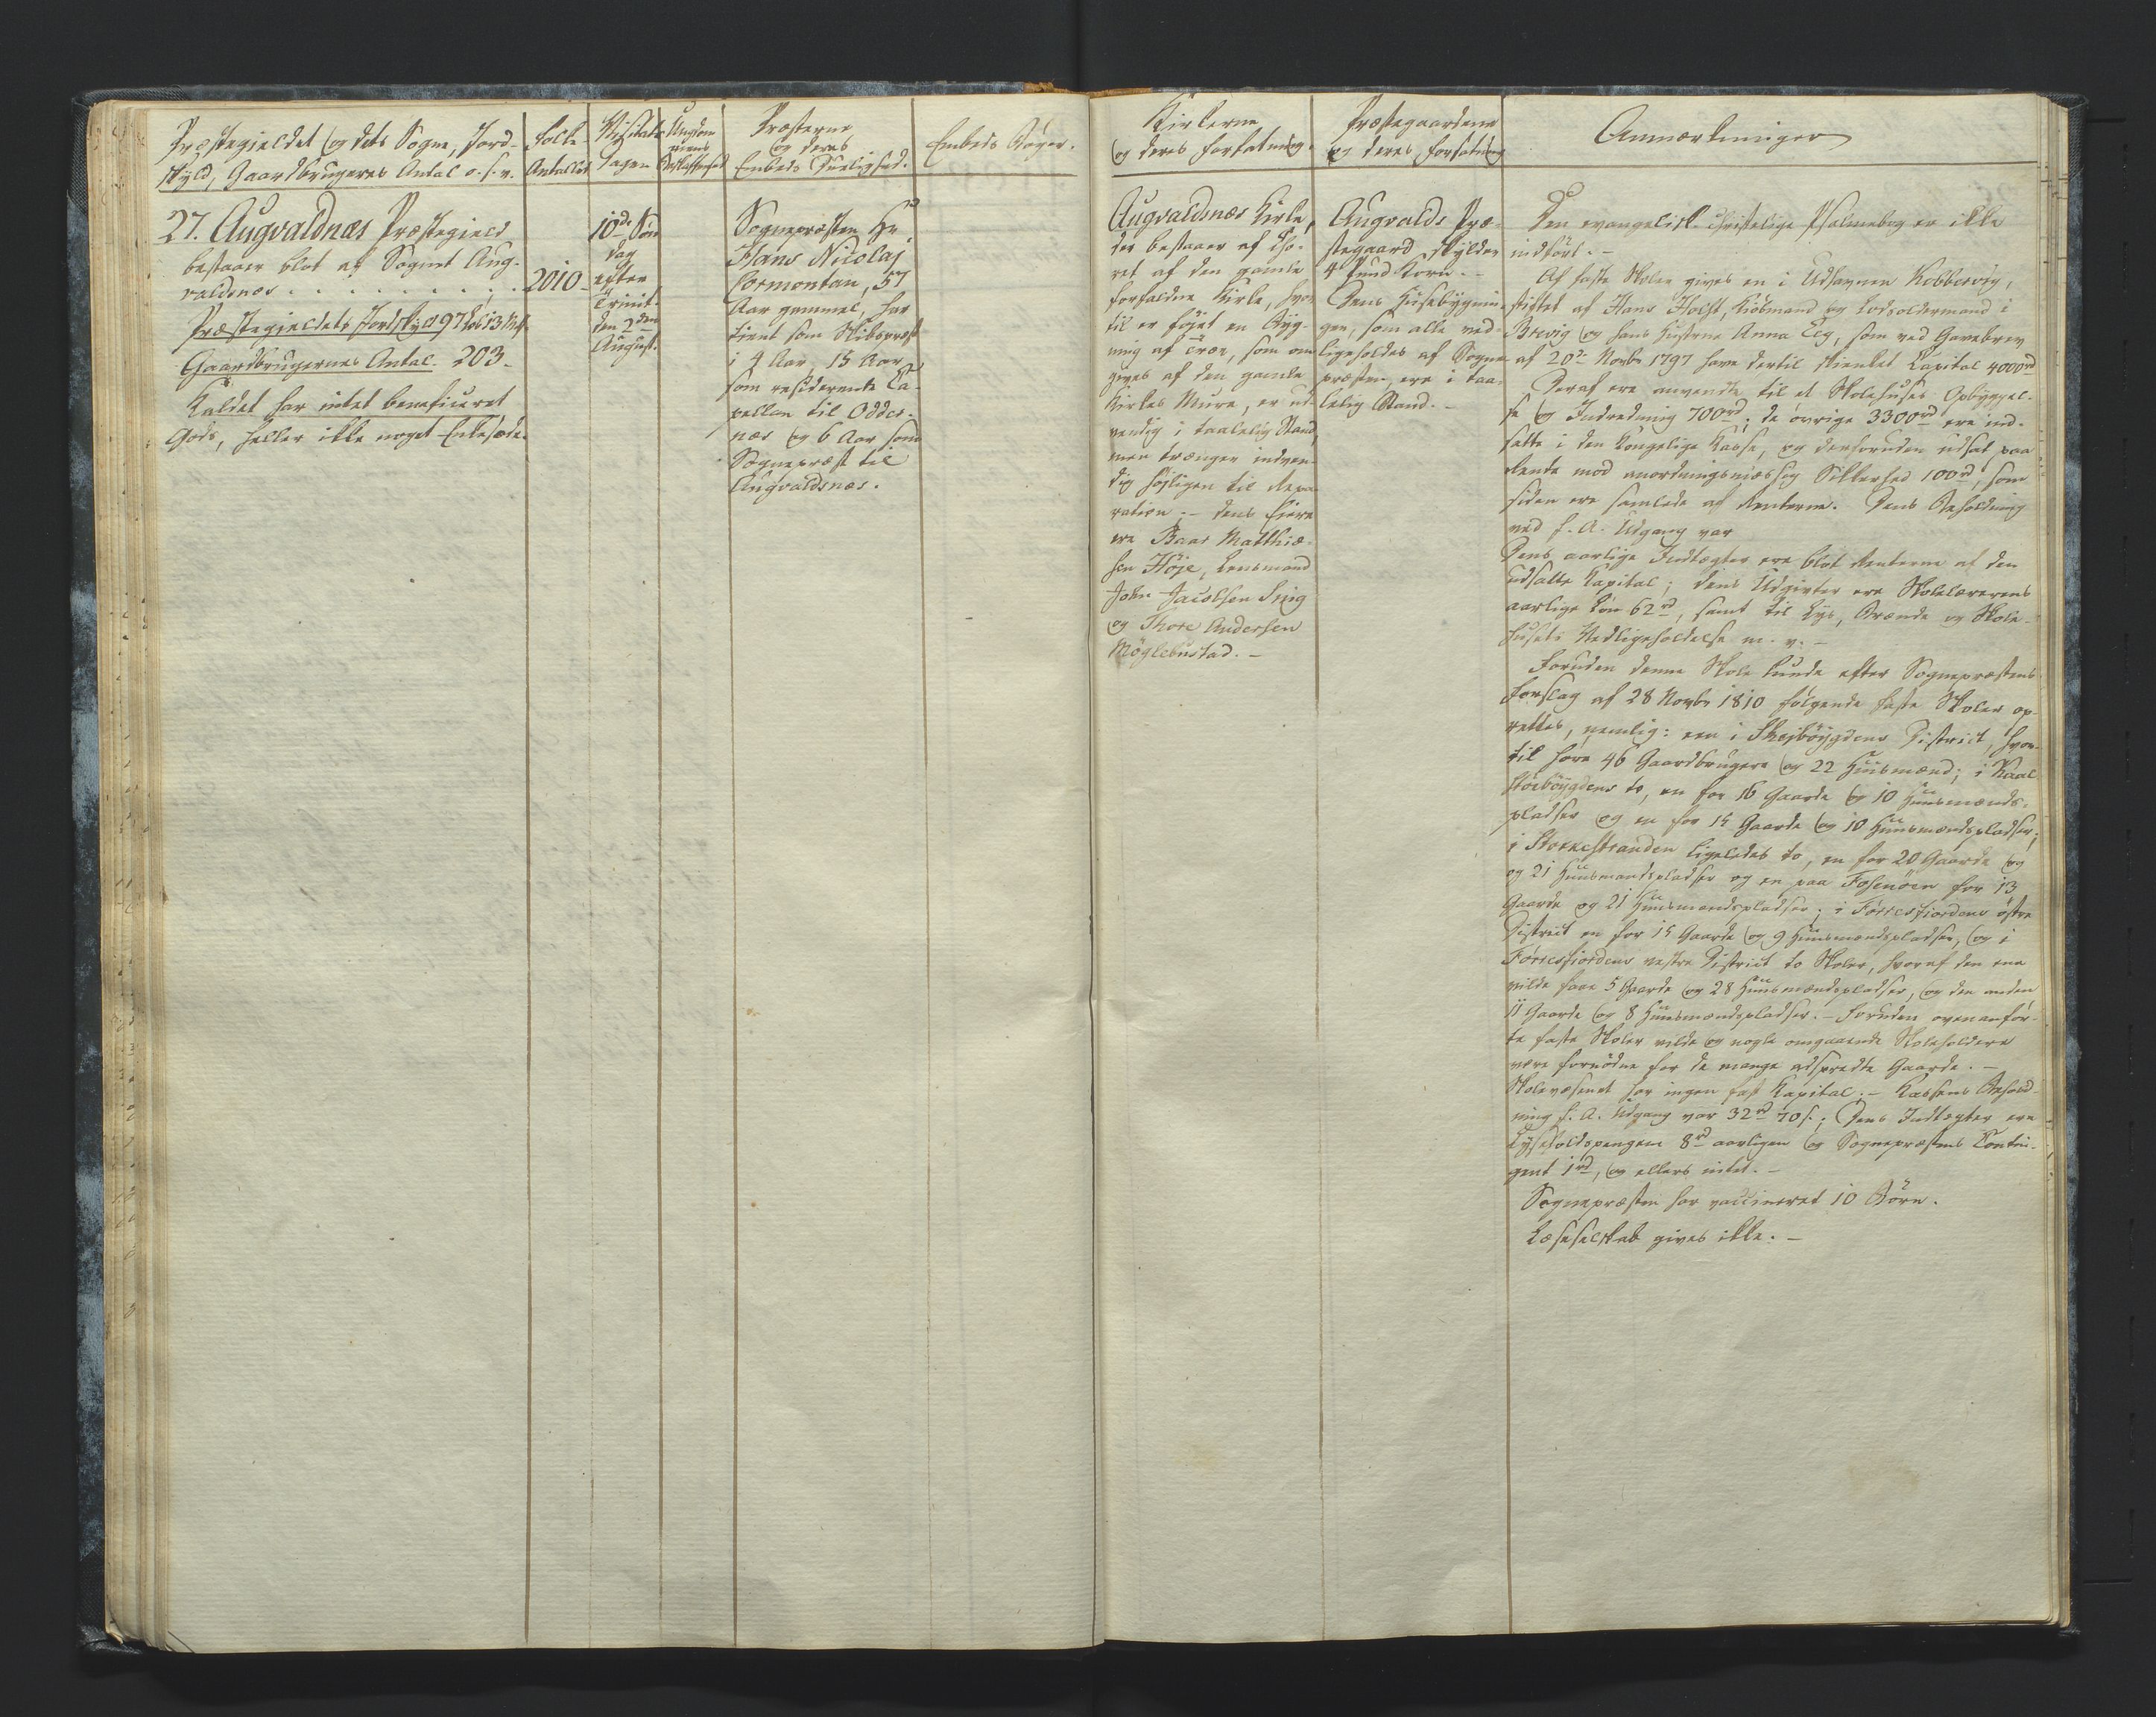 Præstegieldet og dets Sogne, Jord-
skyld, Gaardbrugeres Antal o. s. v.
Folke-
Antallet
Visitats
Dagen
Ungdom-
mens
Beskaffenhed
Præsterne
og deres
Embeds Duelighed.
Embeds Bøger.
27. Augvaldnæs Præstegield
bestaaer blot af Sognet Aug-
valdsnæs . . . . . . . . .
Præstegieldets Jordskyld 97
Gaardbrugernes Antal. 203.
Kaldet har intet beneficeret
Gods, heller ikke noget Enkesæde.
2010
10de Søn
dag
efter
Trinit.
den 2den
August.
Sognepræsten Hr.
Hans Nicolaj
Cormontan, 57
Aar gammel, har
tient som Skibspræst
i 4 Aar, 15 Aar
som residerende Ca-
pellan til Odder-
næs og 6 Aar som
Sognepræst til
Augvaldsnæs.
Kirkerne
og deres Forfatning.
Præstegaardene
og deres Forfatning
Anmærkninger
Augvaldsnæs Kirke,
der bestaaer af Cho-
ret af den gamle
forfaldne Kirke, hvor
til er föjet en Byg-
ning af Træe, som om
gives af den gamle
Kirkes Mure, er ud-
vendig i taalelig Stand,
men trænger indven-
dig højligen til Repa-
ration; – dens Eiere
ere Baar Matthiæ-
sen Höje, Lensmand
John Jacobsen Snig
og Thore Andersen
Möglebustad. –
Augvalds Præ-
stegaard skylder
4 Pund Korn. –
Dens Huusebygnin-
ger, som alle ved-
ligeholdes af Sogne-
præsten, ere i taa-
lelig Stand. –
Den evangelisk-christelige Psalmebog er ikke
indført. –
Af faste Skoler gives en i Udhavnen Kobbervig,
stiftet af Hans Holst, Kiöbmand og Lodsoldermand i
Brevig og hans Hustrue Anna Eeg, som ved Gavebrev
af 20de Novbr 1797 have dertil skienket Kapital 4000rd
Deraf ere anvendte til et Skolehuses Opbyggel-
se og Indredning 700rd; de övrige 3300rd ere ind-
satte i den Kongelige Kasse, og desforuden udsat paa
Rente mod anordningsmæssig Sikkerhed 100rd, som
siden ere samlede af Renterne. Dens Beholdning
ved f. A. Udgang var
Dens aarlige Indtægter ere blot Renterne af den
udsatte Kapital; dens Udgivter ere Skolelærerens
aarlige Lön 62rd, samt til Lys, Brænde og Skole-
husets Vedligeholdelse m. v. –
Foruden denne Skole kunde efter Sognepræstens
Forslag af 28 Novbr 1810 følgende faste Skoler op-
rettes, nemlig: een i Skejböygdens District, hvor-
til høre 46 Gaardbrugere og 22 Huusmænd; i Kaal
stöeböygdens to, en for 16 Gaarde og 10 Huusmænds-
pladser og en for 15 Gaarde og 10 Huusmændspladser;
i Stokkestranden ligeledes to, en for 20 Gaarde og
og 21 Huusmandspladser og en paa Fosenöen for 13
Gaarde og 21 Huusmandspladser; i Förresfiordens östre
District en for 15 Gaarde og 9 Huusmændspladser, og i
Förresfiordens vestre District to Skoler, hvoraf den ene
vilde faae 5 Gaarde og 28 Huusmændspladser, og den anden
11 Gaarde og 8 Huusmændspladser. – Foruden ovenanför-
te faste Skoler vilde og nogle omgaaende Skoleholdere
være fornödne for de mange adspredte Gaarde. –
Skolevæsenet har ingen fast Kapital. – Kassens Behold-
ning f. A. Udgang var 32rd 70s.; Dens Indtægter ere
Lysholdspengene 8rd aarligen og Sognepræstens Contin-
gent 1rd, og ellers intet. –
Sognepræsten har vaccineret 10 Börn.
Læseselskab gives ikke. –